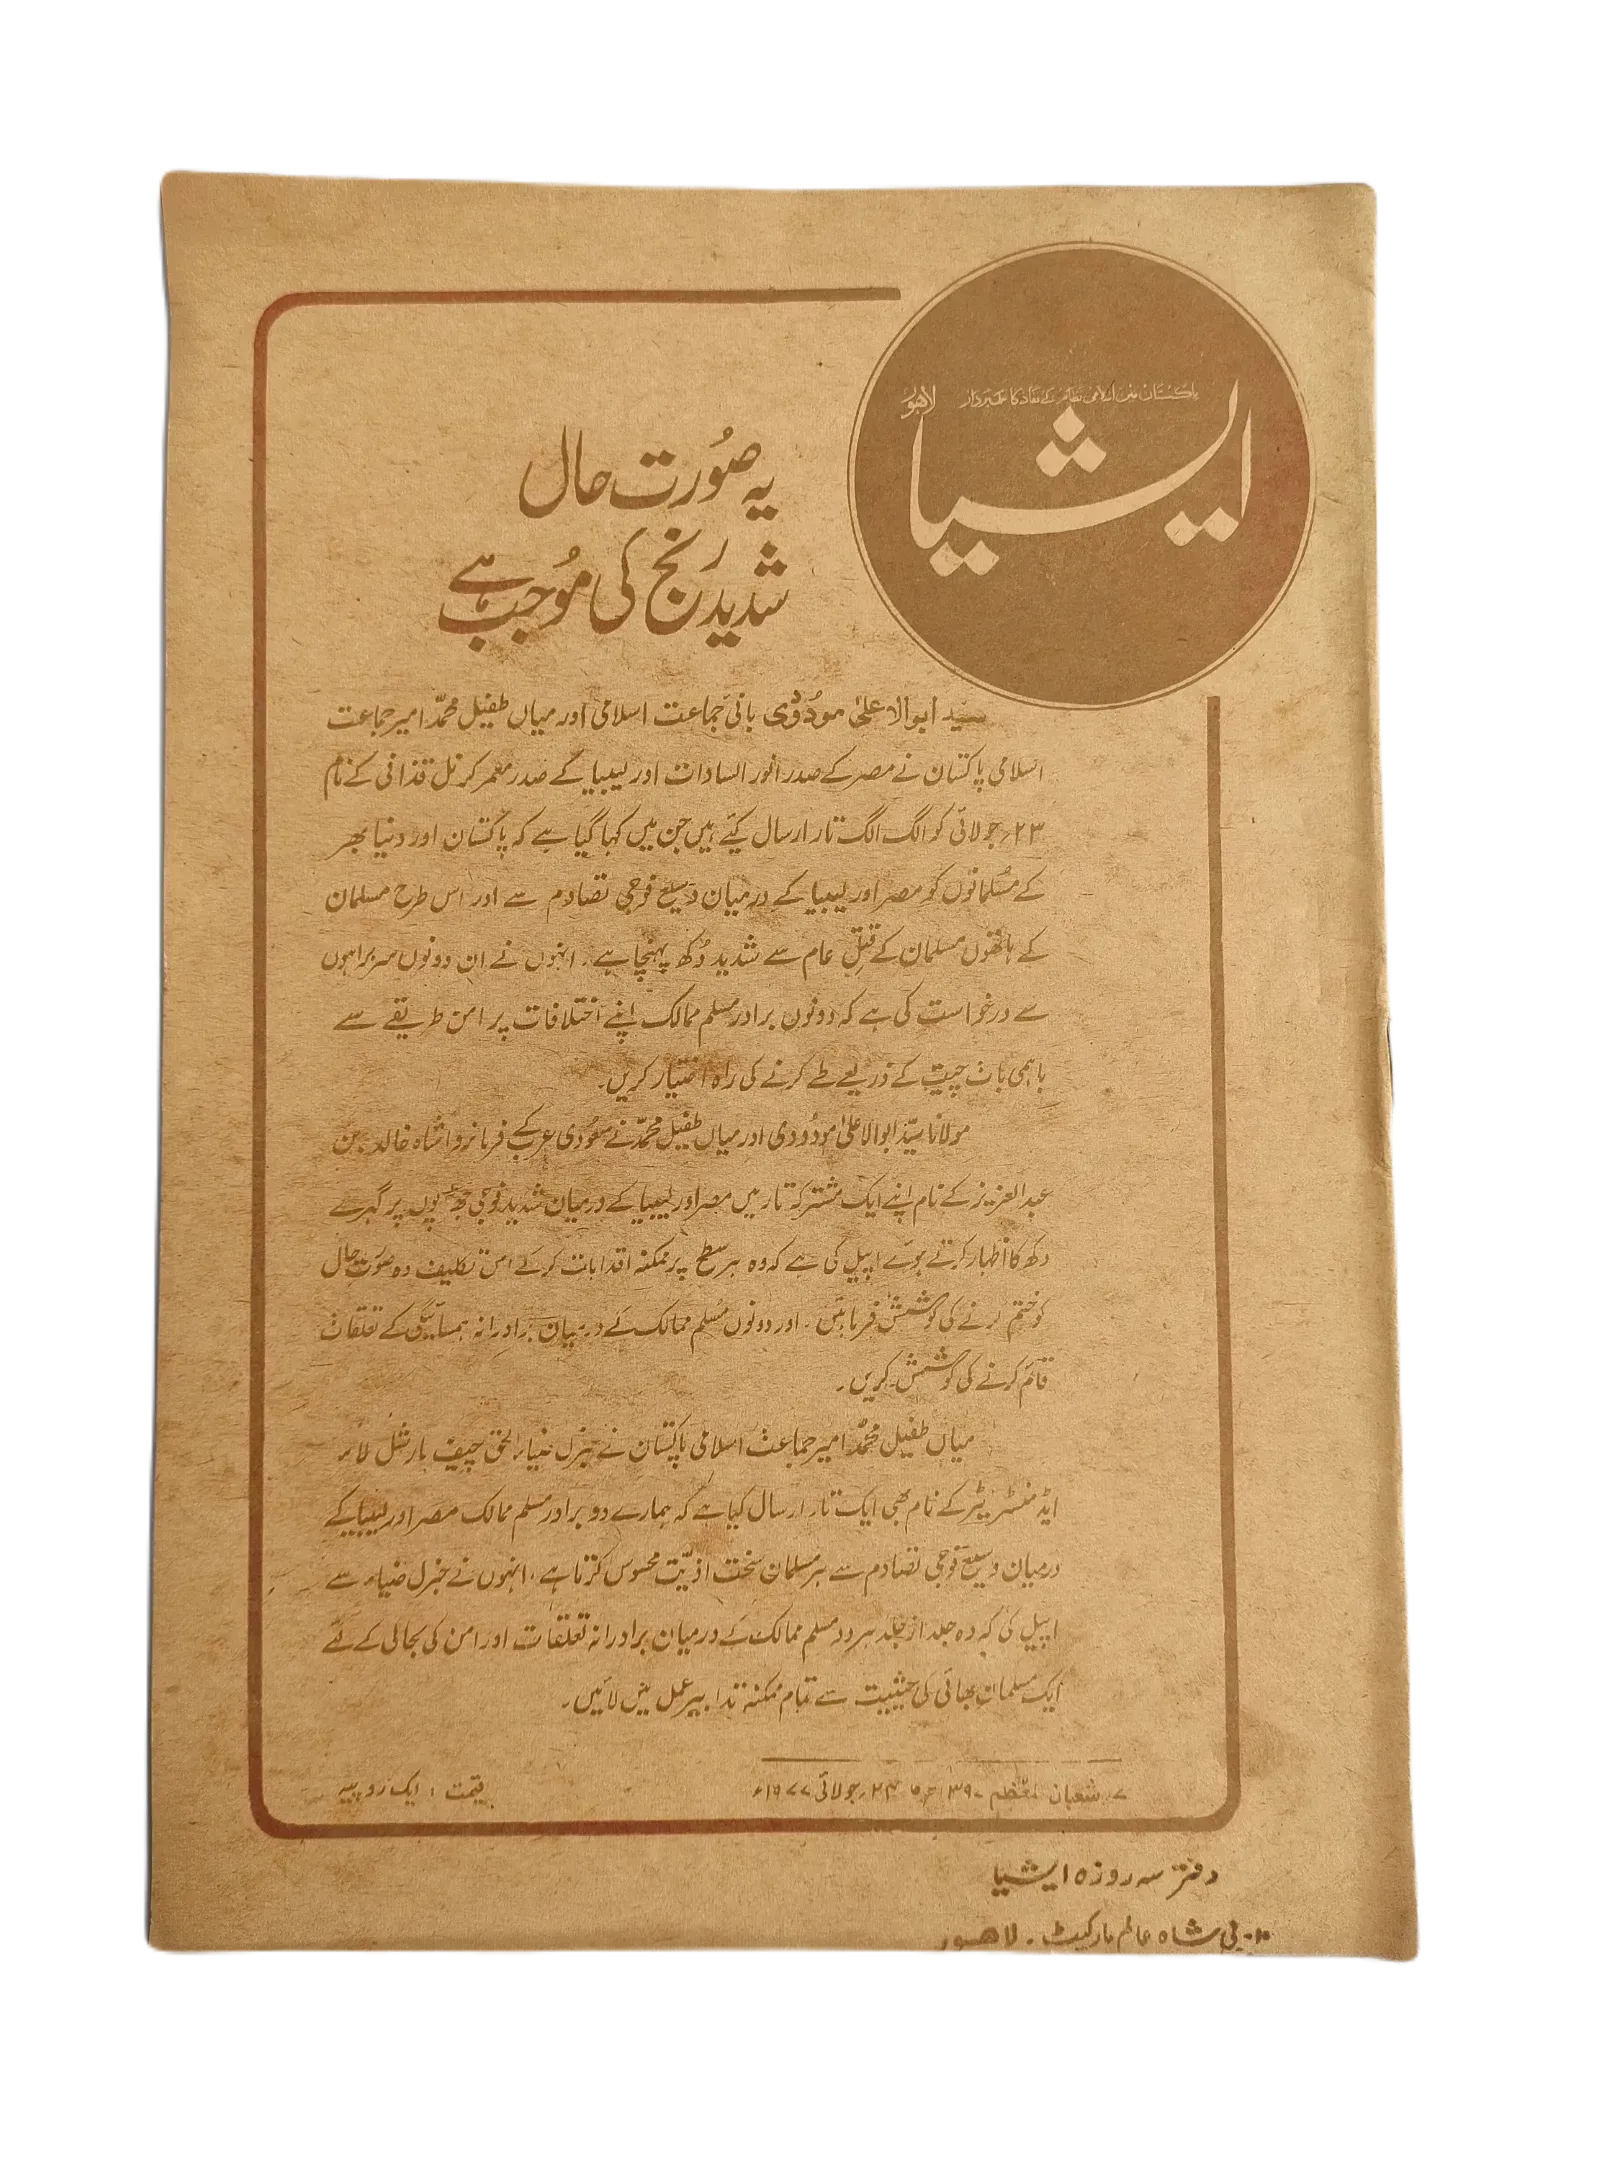 پاکستان میں اسلامی نظام کے نفاذ کا علمبردار
لاہور
ایشیا
یہ صُورت حال
شدید رنج کی مُوجب ہے
سید ابوالاعلیٰ مودُودی بانیٔ جماعت اسلامی اور میاں طفیل محمدّ امیر جماعت
اسلامی پاکستان نے مصر کے صدر انور السادات اور لیبیا کے صدر معمر کرنل قذافی کے نام
۲۳؍ جولائی کو الگ الگ تار ارسال کیے ہیں جن میں کہا گیا ہے کہ پاکستان اور دنیا بھر
کے مسُلمانوں کو مصر اور لیبیا کے درمیان وسیع فوجی تصادم سے اور اس طرح مسلمان
کے ہاتھوں مسلمان کے قتلِ عام سے شدید دُکھ پہنچا ہے۔ انہوں نے ان دونوں سربراہوں
سے درخواست کی ہے کہ دونوں برادر مسلم ممالک اپنے اختلافات پر امن طریقے سے
باہمی بات چیت کے ذریعے طے کرنے کی راہ اختیار کریں۔
مولانا سیّد ابوالاعلیٰ مودُودی اور میاں طفیل محمدّ نے سعُودی عرب کے فرمانروا شاہ خالد بن
عبدالعزیز کے نام اپنے ایک مشترکہ تار میں مصر اور لیبیا کے درمیان شدید فوجی جھڑپوں پر گہرے
دکھ کا اظہار کرتے ہوئے اپیل کی ہے کہ وہ ہر سطح پر ممکنہ اقدامات کرکے اس تکلیف دہ صورت حال
کو ختم کرنے کی کوشش فرمائیں۔ اور دونوں مسُلم ممالک کے درمیان برادرانہ ہمسائیگی کے تعلقات
قائم کرنے کی کوشش کریں۔
میاں طفیل محمدّ امیر جماعت اسلامی پاکستان نے جنرل ضیاء الحق چیف مارشل لاء
ایڈمنسٹریٹر کے نام بھی ایک تار ارسال کیا ہے کہ ہمارے دو برادر مسلم ممالک مصر اور لیبیا کے
درمیان وسیع فوجی تصادم سے ہر مسلمان سخت اذیّت محسوس کرتا ہے۔ انہوں نے جنرل ضیاء سے
اپیل کی کہ وہ جلد از جلد ہر دو مسلم ممالک کے درمیان برادرانہ تعلقات اور امن کی بحالی کے لئے
ایک مسلمان بھائی کی حیثیت سے تمام ممکنہ تدابیر عمل میں لائیں۔
۷؍ شعبان المعظم ۱۳۹۷ھ ۲۴؍ جولائی ۱۹۷۷ء
قیمت : ایک روپیہ
دفتر سہ روزہ ایشیا
۱۰-بی شاہ عالم مارکیٹ۔ لاہور